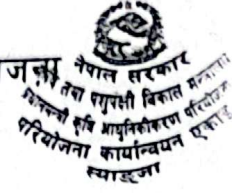 जना
नेपाल सरकार
तथा पशुपंक्षी विकास मन्त्रालय
प्रधानमन्त्री कृषि आधुनिकीकरण परियोजना
परियोजना कार्यान्वयन एकाइ
स्याङ्जा